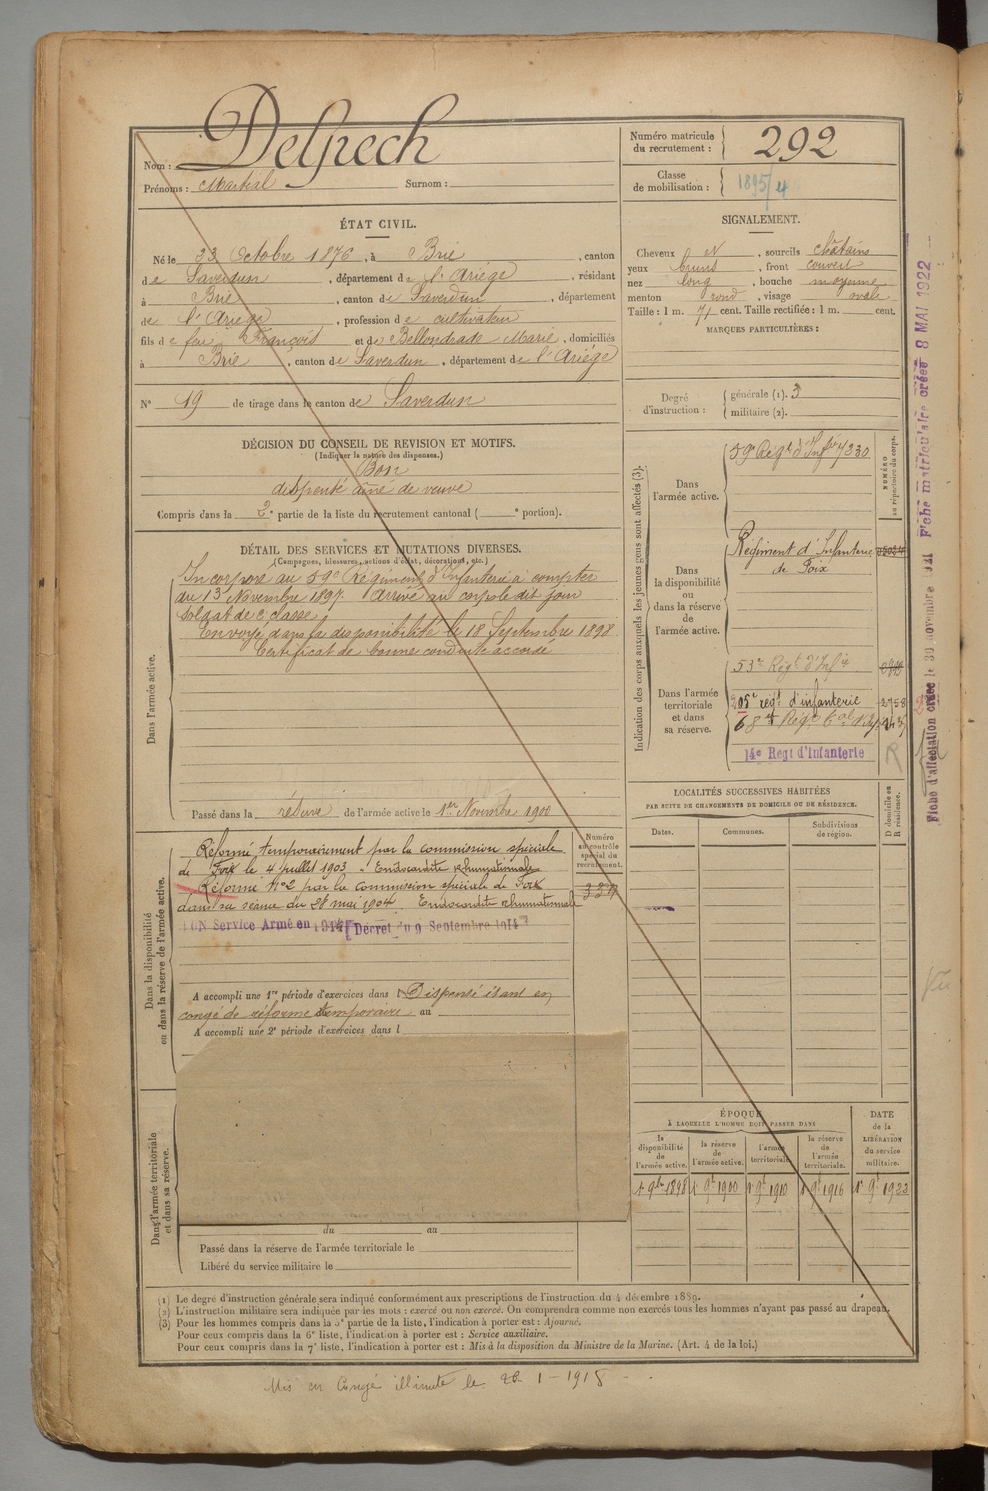 Nom : Delpech
Prénoms : Martial Surnom :
Numéro matricule du recrutement : 292
Classe de mobilisation : 1895/4
ÉTAT CIVIL.
Né le 23 Octobre 1876, à Brie, canton
de Saverdun, département de l'Ariège, résidant
à Brie, canton de Saverdun, département
de l'Ariège, profession de cultivateur
fils de feu François et de Marie, domiciliés
à Brie, canton de Saverdun, département de l'Ariège
N° 19 de tirage dans le canton de Saverdun
DÉCISION DU CONSEIL DE REVISION ET MOTIFS.
(Indiquer la nature des dispenses.)
Bon
dispensé aîné de veuve
Compris dans la 2e partie de la liste du recrutement cantonal ( e portion).
SIGNALEMENT.
Cheveux N, sourcils châtains
yeux bruns, front couvert
nez long, bouche moyenne
menton rond, visage ovale
Taille : 1 m. 71 cent. Taille rectifiée : 1 m. cent.
MARQUES PARTICULIÈRES :
Degré d'instruction : générale (1). 3
militaire (2).
DÉTAIL DES SERVICES ET MUTATIONS DIVERSES.
(Campagnes, blessures, actions d'éclat, décorations, etc.)
Dans l'armée active.
Incorporé au 59e Régiment d'Infanterie à compter
du 13 Novembre 1897. Arrivé au corps le dit jour
soldat de 2e classe
Envoyé dans la disponibilité le 18 Septembre 1898
Certificat de bonne conduite accordé
Passé dans la réserve de l'armée active le 1er Novembre 1900
Indication des corps auxquels les jeunes gens sont affectés (3).
NUMÉRO au répertoire du corps.
Dans l'armée active.
59e Régt d'Infrie 7330
Dans la disponibilité ou dans la réserve de l'armée active.
Régiment d'Infanterie
de Foix
Dans l'armée territoriale et dans sa réserve.
53e Régt d'Infie
205e régt d'infanterie 2758
68e Régt
14e Regt d'Infanterie
R
Dans la disponibilité ou dans la réserve de l'armée active.
Numéro au contrôle spécial du recrutement.
Réformé temporairement par la commission spéciale
de Foix le 4 juillet 1903. Endocardite rhumatismale
Réformé No 2 par la commission spéciale de Foix
dans sa séance du 28 mai 1904. Endocardite rhumatismale
BON Service Armé en 1914 [Décret du 9 Septembre 1914]
A accompli une 1re période d'exercices dans l Dispensé étant en
congé de réforme temporaire au
A accompli une 2e période d'exercices dans l
LOCALITÉS SUCCESSIVES HABITÉES
PAR SUITE DE CHANGEMENTS DE DOMICILE OU DE RÉSIDENCE.
Dates. Communes. Subdivisions de région. D domicile ou R résidence.
Dans l'armée territoriale et dans sa réserve.
du au
Passé dans la réserve de l'armée territoriale le
Libéré du service militaire le
ÉPOQUE
À LAQUELLE L'HOMME DOIT PASSER DANS
la disponibilité de l'armée active. la réserve de l'armée active. l'armée territoriale. la réserve de l'armée territoriale. DATE de la LIBÉRATION du service militaire.
1er 9bre 1898 1er 9bre 1900 1er 9bre 1910 1er 9bre 1916 1er 9bre 1922
(1) Le degré d'instruction générale sera indiqué conformément aux prescriptions de l'instruction du 4 décembre 1889.
(2) L'instruction militaire sera indiquée par les mots : exercé ou non exercé. On comprendra comme non exercés tous les hommes n'ayant pas passé au drapeau.
(3) Pour les hommes compris dans la 5e partie de la liste, l'indication à porter est : Ajourné.
Pour ceux compris dans la 6e liste, l'indication à porter est : Service auxiliaire.
Pour ceux compris dans la 7e liste, l'indication à porter est : Mis à la disposition du Ministre de la Marine. (Art. 4 de la loi.)
Mis en Congé illimité le 1-1918
Fiche matriculaire créée 8 MAI 1922
Fiche d'affectation créée le 30 novembre 1911
Vu